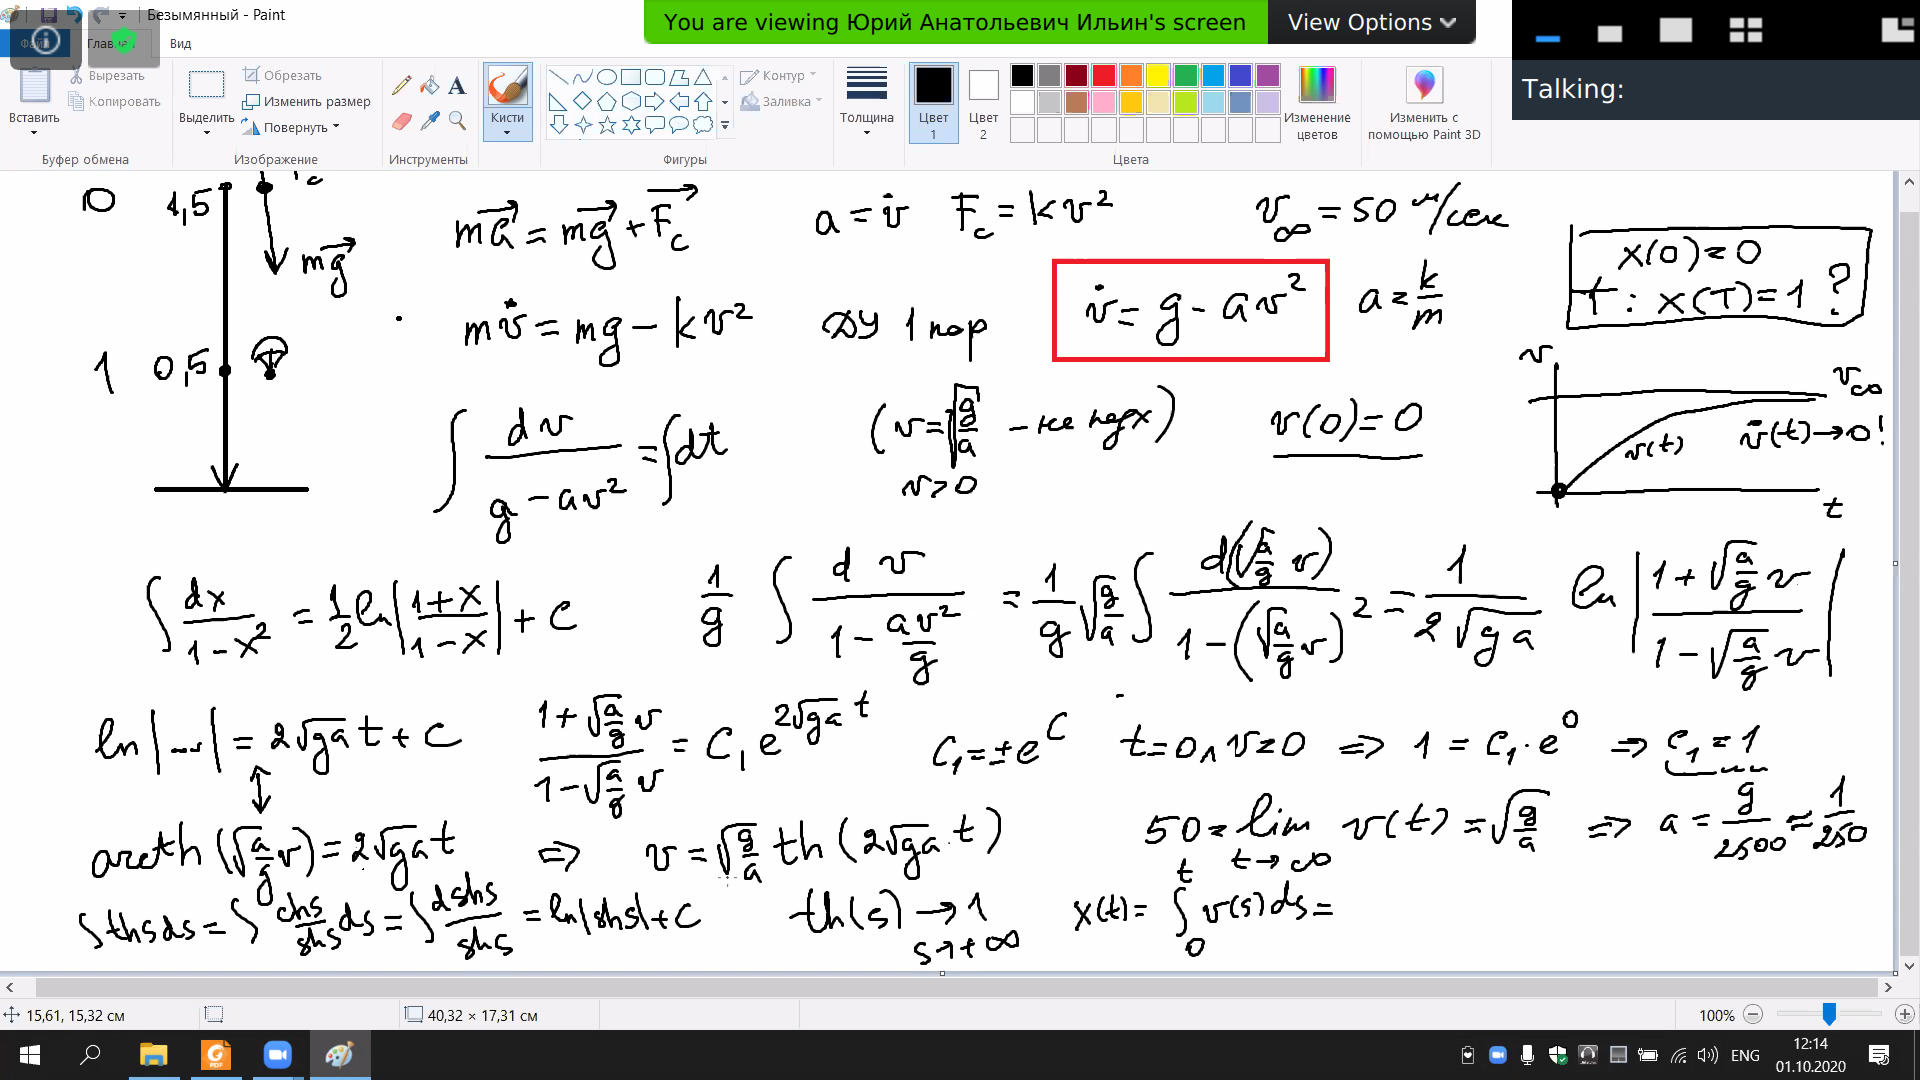 Безымянный - Paint
You are viewing Юрий Анатольевич Ильин's screen
View Options
Talking:
Файл Главная Вид
Вставить
Вырезать
Копировать
Буфер обмена
Выделить
Обрезать
Изменить размер
Повернуть
Изображение
Инструменты
Кисти
Контур
Заливка
Фигуры
Толщина
Цвет 1
Цвет 2
Изменение цветов
Цвета
Изменить с помощью Paint 3D
0 1,5 F_c
mg⃗
1 0,5
ma⃗ = mg⃗ + F⃗_c a = v̇ F_c = kv² v_∞ = 50 м/сек
x(0) = 0
T: x(T) = 1 ?
mv̇ = mg − kv² ДУ 1 пор v̇ = g − av² a = k/m
∫ dv/(g − av²) = ∫dt (v = √(g/a) − не подх) v(0) = 0
v > 0
v v_∞ v(t) v̇(t) → 0! t
∫ dx/(1−x²) = 1/2 ln|(1+x)/(1−x)| + C 1/g ∫ dv/(1 − av²/g) = 1/g √(g/a) ∫ d(√(a/g) v)/(1 − (√(a/g) v)²) = 1/(2√(ga)) ln|(1+√(a/g) v)/(1−√(a/g) v)|
ln|...| = 2√(ga) t + C (1+√(a/g) v)/(1−√(a/g) v) = C₁ e^(2√(ga) t) C₁ = ±e^C t=0, v=0 ⇒ 1 = C₁·e⁰ ⇒ C₁ = 1
arcth(√(a/g) v) = 2√(ga) t ⇒ v = √(g/a) th(2√(ga)·t) 50 = lim_(t→∞) v(t) = √(g/a) ⇒ a = g/2500 ≈ 1/250
∫ths ds = ∫ chs/shs ds = ∫ dshs/shs = ln|shs| + C th(s) → 1 s→+∞ x(t) = ∫₀ᵗ v(s)ds =
15,61, 15,32 см
40,32 × 17,31 см
100%
ENG
12:14
01.10.2020